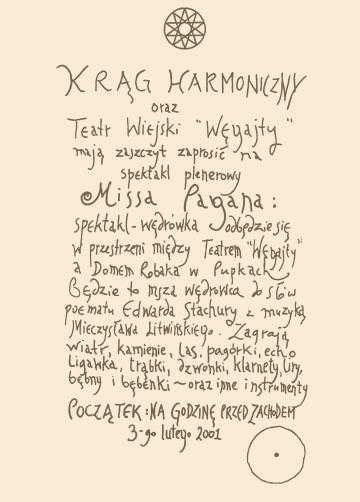 KRĄG HARMONICZNY
oraz
Teatr Wiejski "Węgajty"
mają zaszczyt zaprosić na
spektakl plenerowy
Missa Pagana:
spektakl-wędrówka odbędzie się
w przestrzeni między Teatrem "Węgajty"
a Domem Robaka w Pupkach
Będzie to msza wędrowca do słów
poematu Edwarda Stachury z muzyką
Mieczysława Litwińskiego. Zagrają
wiatr, kamienie, las, pagórki, echo
ligawka, trąbki, dzwonki, klarnety, liry,
bębny i bębenki ~ oraz inne instrumenty
POCZĄTEK: NA GODZINĘ PRZED ZACHODEM
3-go lutego 2001